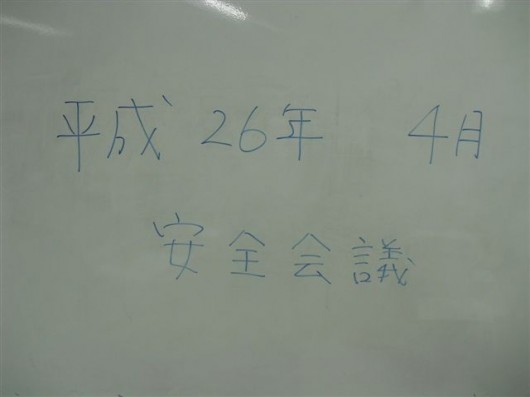 平成 26年 4月
安全会議